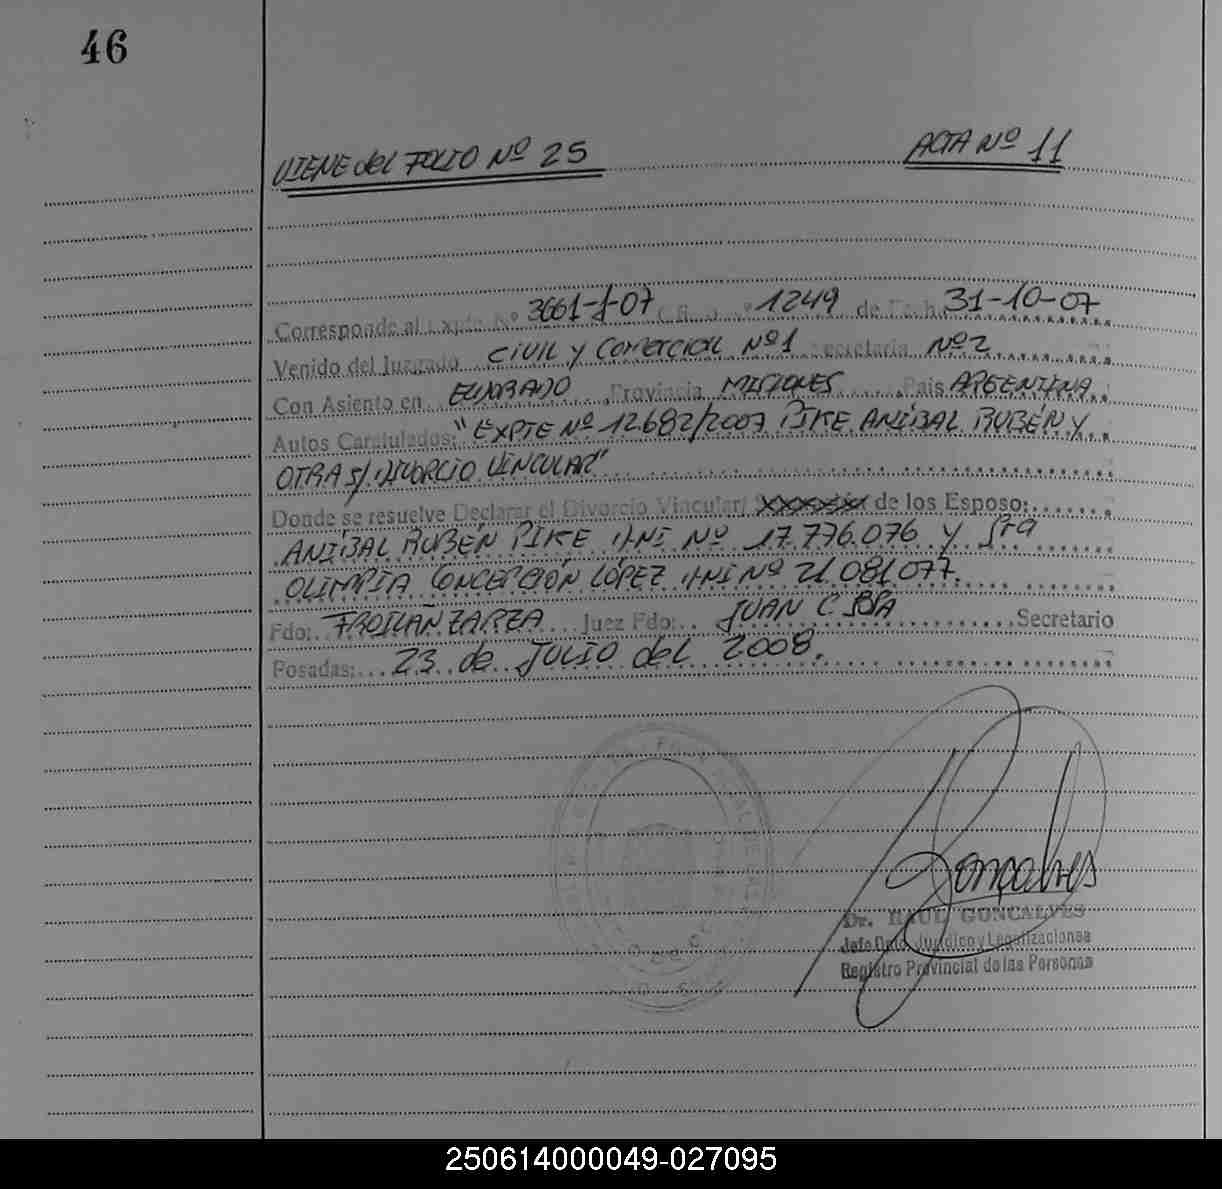 46
VIENE del FOLIO Nº 25 ACTA Nº 11
Corresponde al Expte Nº 3661-J-07 Ofic. Nº 1249 de Fech. 31-10-07
Venido del Juzgado CIVIL y COMERCIAL Nº 1 Secretaria Nº 2
Con Asiento en ELDORADO, Provincia MISIONES, Pais ARGENTINA
Autos Caratulados: "EXPTE Nº 12682/2007 PIKE ANÍBAL RUBÉN Y
OTRA S/ DIVORCIO VINCULAR"
Donde se resuelve Declarar el Divorcio Vincular/ de los Esposo:
ANÍBAL RUBÉN PIKE DNI Nº 17.776.076 y Sra
OLIMPIA CONCEPCIÓN LÓPEZ DNI Nº 21.081.077.
Fdo: FROILÁN ZARZA Juez Fdo: JUAN C. Secretario
Posadas: 23 de JULIO del 2008.
Goncalves
Dr. RAUL GONCALVES
Jefe Dpto. Jurídico y Legalizaciones
Registro Provincial de las Personas
250614000049-027095